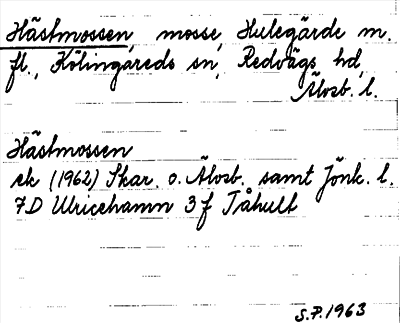 Hästmossen, mosse, Hulegärde m.
fl., Kölingareds sn, Redvägs hd,
Älvsb. l.
Hästmossen
ek (1962) Skar. o. Älvsb. samt Jönk. l.
7D Ulricehamn 3f Tåhult
S.P. 1963